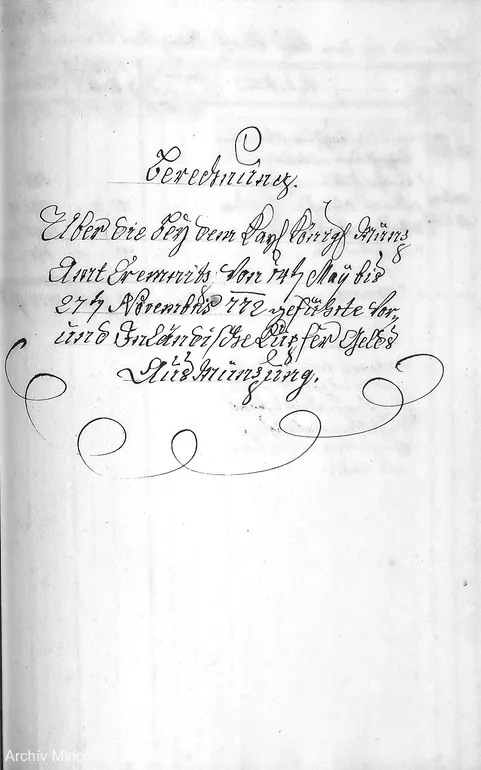 Berechnung.
Über die beÿ dem Kaÿs Königs Münz
Amt Cremnitz von 14t Maÿ bis
27t Novembris 772 geführte Vor,,
und Inländische Kupfer Geldes
Ausmünzung.
Archív Mincovne